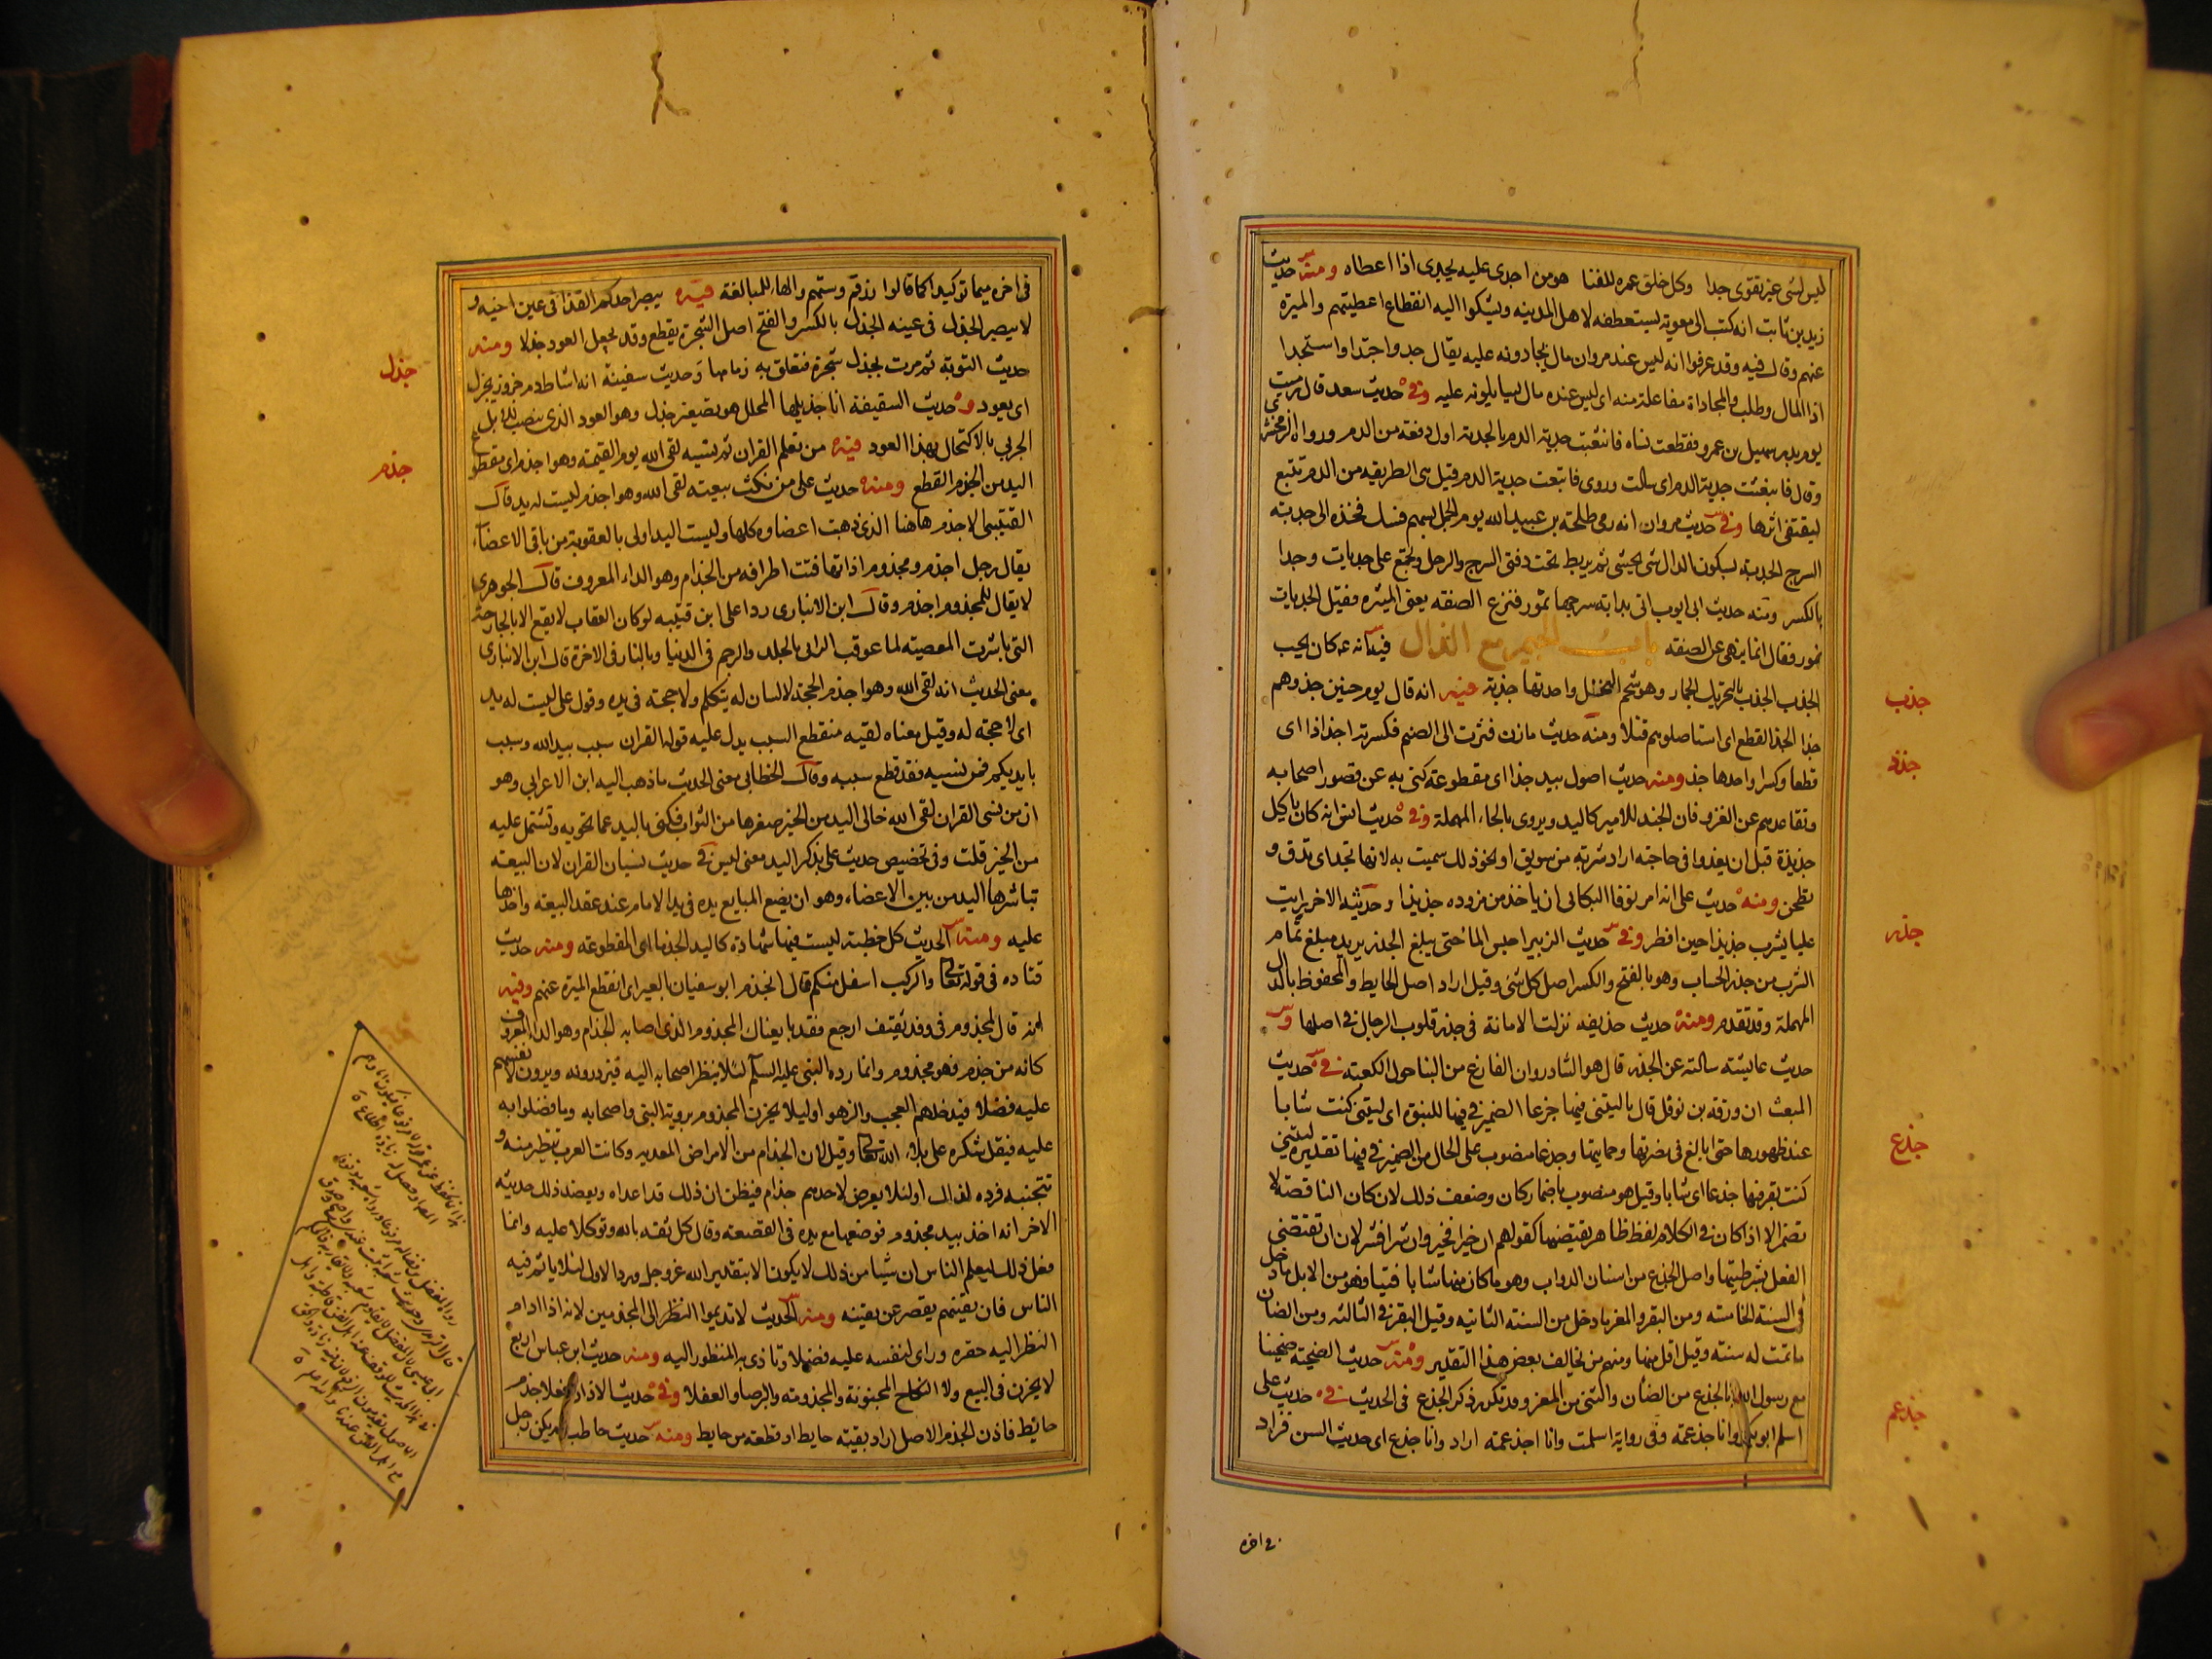 ليس لشى غير تقوى جدا وكل خلق عمره للفنا هو من اجدى عليه يجدى اذا اعطاه ومنه حديث
زيد بن ثابت انه كتب الى معوية يستعطفه لاهل المدينه ويشكوا اليه انقطاع اعطيتهم والميرة
عنهم وقال فيه وقد عرفوا انه ليس عند مروان مال يجادونه عليه يقال جدا واجتدا واستجدا
اذا المال وطلب والمجاداة مفاعلة منه اى ليس عنده مال يسايلونه عليه وفى حديث سعد قال رميت
يوم بدر سهيل بن عمرو فقطعت نساه فانثعبت جدية الدم الجدية اول دفعة من الدم ورواه الزمخشرى
وقال فاتبعت جدية الدم اى سالت وروى فاتبعت جدية الدم قيل هى الطريقه من الدم تتبع
ليقتفى اثرها وفى حديث مروان انه رمى طلحة بن عبيد الله يوم الجمل بسهم فشك فخذه الى جدية
السرج الجدية بسكون الدال شى يحشى ثم يربط تحت دفتى السرج والرحل وتجمع على جديات وجدا
بالكسر ومنه حديث ابى ايوب اتى بدابة سرجها نمور فنزع الصفه يعنى الميثره فقيل الجديات
نمور فقال انما ينهى عن الصفه باب الجيم مع الذال فيه انه كان يحب
الجذب الجذب بالتحريك الجمار وهو شحم النخل واحدتها جذبة فيه انه قال يوم حنين جذوهم
جذا الجذ القطع اى استاصلوهم قتلا ومنه حديث مازن فثرت الى الصنم فكسرته اجذاذا اى
قطعا وكسرا واحدها جذ ومنه حديث اصول بيد جذا اى مقطوعة كنى به عن قصور اصحابه
وتقاعدهم عن الغزو فان الجند للامير كاليد ويروى بالحاء المهملة وفى حديث انس انه كان ياكل
جذيذة قبل ان يغدوا فى حاجته اراد شربة من سويق او نحو ذلك سميت به لانها تجذ اى تدق و
تطحن ومنه حديث على انه امر نوفا البكالى ان ياخذ من مزوده جذيذا وحديثه الاخر رايت
عليا يشرب جذيذا حين افطر وفى حديث الزبير احبس الما حتى يبلغ الجذر يريد مبلغ تمام
الشرب من جذر الحساب وهو بالفتح والكسر اصل كل شى وقيل اراد اصل الحايط والمحفوظ بالدال
المهملة وقد تقدم ومنه حديث حذيفه نزلت الامانة فى جذر قلوب الرجال فى اصلها و
حديث عايشة سالته عن الجذر قال هو الشاذروان الفارغ من البنا حول الكعبة فى حديث
المبعث ان ورقه بن نوفل قال ياليتنى فيها جذعا الضمير فى فيها للنبوة اى ليتنى كنت شابا
عند ظهورها حتى ابالغ فى نصرتها وحمايتها وجذعا منصوب على الحال من الضمير فى فيها تقديره ليتنى
كنت بقر فيها جذعا اى شابا وقيل هو منصوب باضمار كان وضعف ذلك لان كان الناقصة لا
تضمر الا اذا كان فى الكلام لفظ ظاهر يقتضيها كقولهم ان خيرا فخير وان شرا فشر لان ان تقتضى
الفعل بشرطيتها واصل الجذع من اسنان الدواب وهو ما كان منها شابا فتيا فهو من الابل ما دخل
فى السنة الخامسة ومن البقر والمعز ما دخل من السنة الثانيه وقيل البقر فى الثالثه ومن الضان
ما تمت له سنة وقيل اقل منها ومنهم من يخالف بعض هذا التقدير ومنه حديث الضحية ضحينا
مع رسول الله بالجذع من الضان والثنى من المعز وقد تكرر ذكر الجذع فى الحديث فى حديث على
اسلم ابو بكر وانا جذعمة وفى رواية اسلمت وانا اجذعمة اراد وانا جذع اى حديث السن فزاد
جذب
جذذ
جذر
جذع
جذعم
فى اخره
فى اخره ميما توكيدا كما قالوا زرقم وستهم والهاء للمبالغة فيه يبصر احدكم القذا فى عين اخيه و
لا يبصر الجذل فى عينه الجذل بالكسر والفتح اصل الشجرة يقطع وقد يجعل العود جذلا ومنه
حديث التوبة ثم مرت بجذل شجرة فتعلق به زمامها وحديث سفينة انه اشاط دم جزور بجذل
اى بعود وحديث السقيفة انا جذيلها المحلل هو تصغير جذل وهو العود الذى ينصب للابل
الجربى بالاكتحال بهذا العود فيه من تعلم القران ثم نسيه لقى الله يوم القيمة وهو اجذم اى مقطوع
اليد من الجذم القطع ومنه حديث على من نكث بيعته لقى الله وهو اجذم ليست له يد قال
القتيبى الاجذم هاهنا الذى ذهبت اعضاوه كلها وليست اليد اولى بالعقوبة من باقى الاعضاء
يقال رجل اجذم ومجذوم اذا تهافتت اطرافه من الجذام وهو الداء المعروف قال الجوهرى
لا يقال للمجذوم اجذم وقال ابن الانبارى ردا على ابن قتيبه لو كان العقاب لا يقع الا بالجارحة
التى باشرت المعصيته لما عوقب الزانى بالجلد والرجم فى الدنيا وبالنار فى الاخرة قال ابن الانبارى
معنى الحديث انه لقى الله وهو اجذم الحجة لا لسان له يتكلم ولا حجة فى يده وقول على ليست له يد
اى لا حجة له وقيل معناه لقيه منقطع السبب يدل عليه قوله القران سبب بيد الله وسبب
بايديكم فمن نسيه فقد قطع سببه وقال الخطابى معنى الحديث ما ذهب اليه ابن الاعرابى وهو
ان من نسى القران لقى الله خالى اليد من الخير صفرها من الثواب فكنى باليد عما تحويه وتشتمل عليه
من الخير قلت وفى تخصيص حديث على بذكر اليد معنى ليس فى حديث نسيان القران لان البيعه
تباشرها اليد من بين الاعضاء وهو ان يضع المبايع يده فى يد الامام عند عقد البيعة واخذها
عليه ومنه الحديث كل خطبة ليست فيها شهادة كاليد الجذما اى المقطوعه ومنه حديث
قتاده فى قوله تعالى والركب اسفل منكم قال انجذم ابو سفيان بالعير اى انقطع الميرة عنهم وفيه
انه قال لمجذوم فى وفد ثقيف ارجع فقد بايعناك المجذوم الذى اصابه الجذام وهو الداء المعروف
كانه من جذم فهو مجذوم وانما رده النبى عليه السلم لئلا ينظر اصحابه اليه فيزدرونه ويرون لانفسهم
عليه فضلا فيدخلهم العجب والزهو او ليلا يحزن المجذوم بروية النبى واصحابه وما فضلوا به
عليه فيقل شكره على بلاء الله تعالى وقيل لان الجذام من الامراض المعديه وكانت العرب تتطير منه و
تتجنبه فرده لذلك او لئلا يعرض لاحدهم جذام فيظن ان ذلك قد اعداه وبعضد ذلك حديثه
الاخر انه اخذ بيد مجذوم فوضعها مع يده فى القصعة وقال كل ثقة بالله وتوكلا عليه وانما
فعل ذلك ليعلم الناس ان شيا من ذلك لا يكون الا بتقدير الله عز وجل ورد الاول لئلا ياثم فيه
الناس فان يقينهم يقصر عن يقينه ومنه الحديث لا تديموا النظر الى المجذمين لانه اذا ادام
النظر اليه حقره وراى لنفسه عليه فضلا وتاذى به المنظور اليه ومنه حديث ابن عباس اربع
لا يجزن فى البيع ولا النكاح المجنونة والمجذومة والبرصا والعفلا وفى حديث الاذان فعلا جذم
حايط فاذن الجذم الاصل اراد بقية حايط او قطعة من حايط ومنه حديث حاطب لم يكن رجل
جذل
جذم